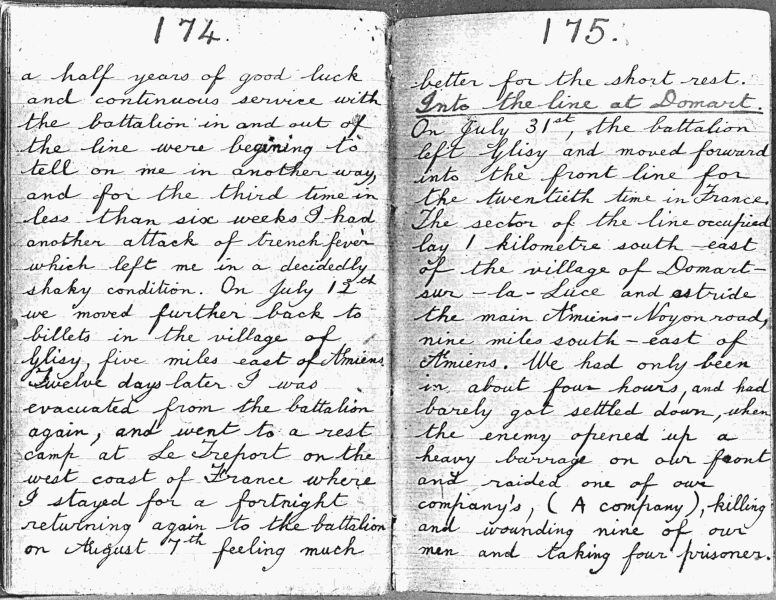 174.
a half years of good luck
and continuous service with
the battalion in and out of
the line were begining to
tell on me in another way,
and for the third time in
less than six weeks I had
another attack of trench fever
which left me in a decidedly
shaky condition. On July 12th
we moved further back to
billets in the village of
Glisy, five miles east of Amiens.
Twelve days later I was
evacuated from the battalion
again, and went to a rest
camp at Le Treport on the
west coast of France where
I stayed for a fortnight
returning again to the battalion
on August 7th feeling much
175.
better for the short rest.
Into the line at Domart.
On July 31st, the battalion
left Glisy and moved forward
into the front line for
the twentieth time in France.
The sector of the line occupied
lay 1 kilometre south-east
of the village of Domart-
sur-la-Luce and astride
the main Amiens-Noyon road,
nine miles south-east of
Amiens. We had only been
in about four hours, and had
barely got settled down, when
the enemy opened up a
heavy barrage on our front
and raided one of our
company's, (A company), killing
and wounding nine of our
men and taking four prisoner.